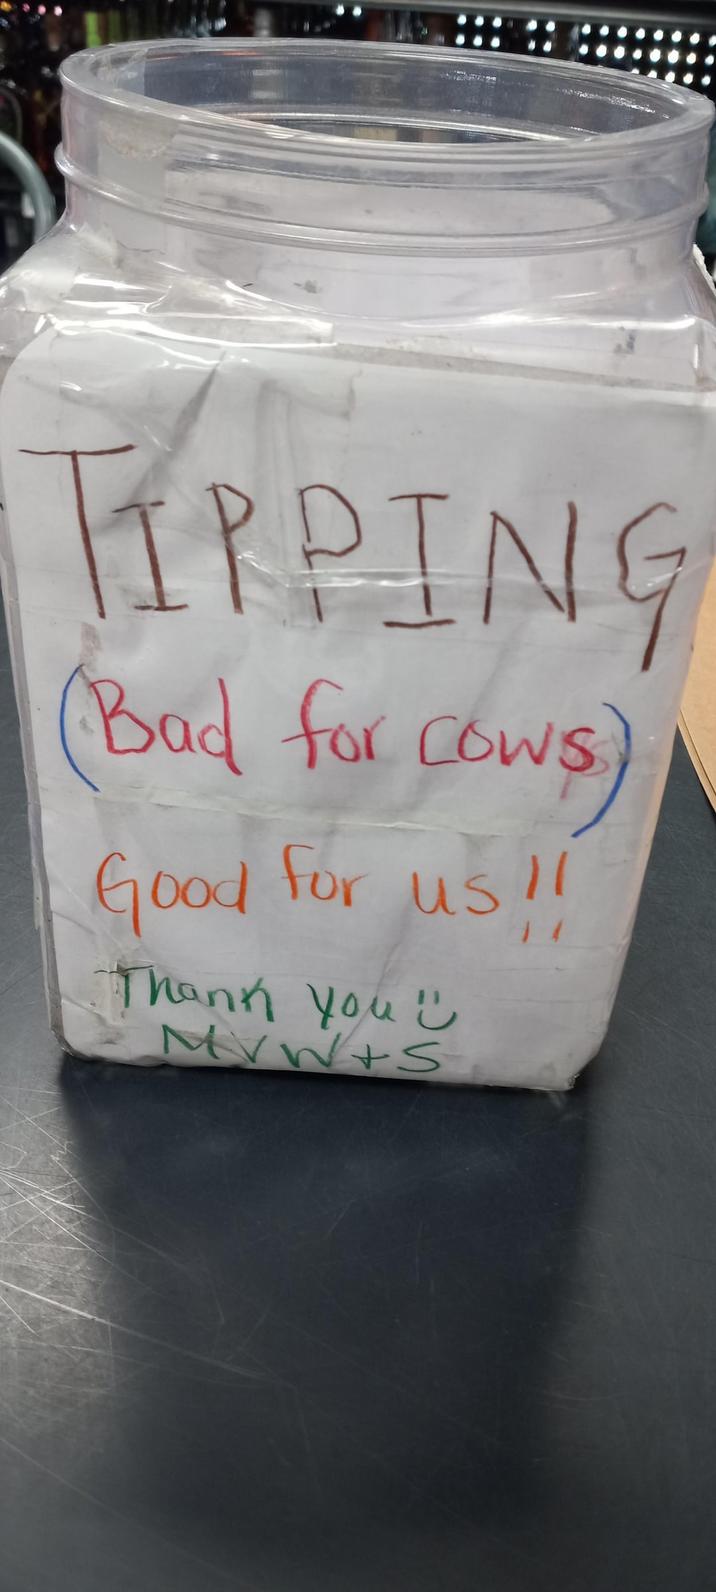 TIPPING
(Bad for cows)
Good for us!!
Thank you :)
MVW+S